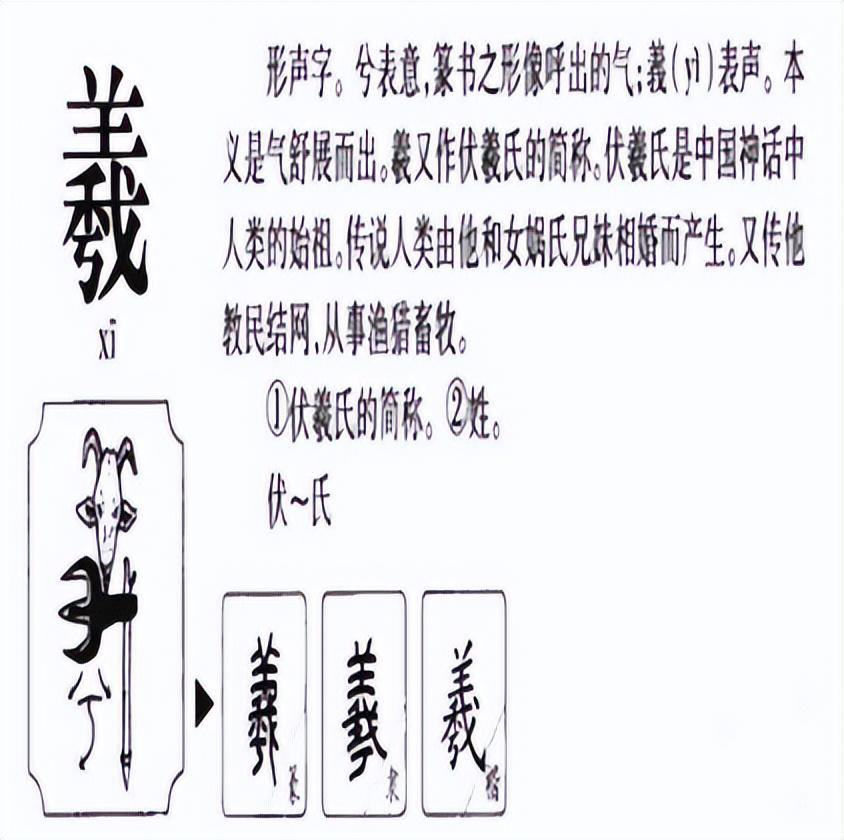 羲
xī
形声字。兮表意,篆书之形像呼出的气;義(yì)表声。本
义是气舒展而出。羲又作伏羲氏的简称。伏羲氏是中国神话中
人类的始祖。传说人类由他和女娲氏兄妹相婚而产生。又传他
教民结网,从事渔猎畜牧。
①伏羲氏的简称。②姓。
伏~氏
兮
羲 篆
羲 隶
羲 楷